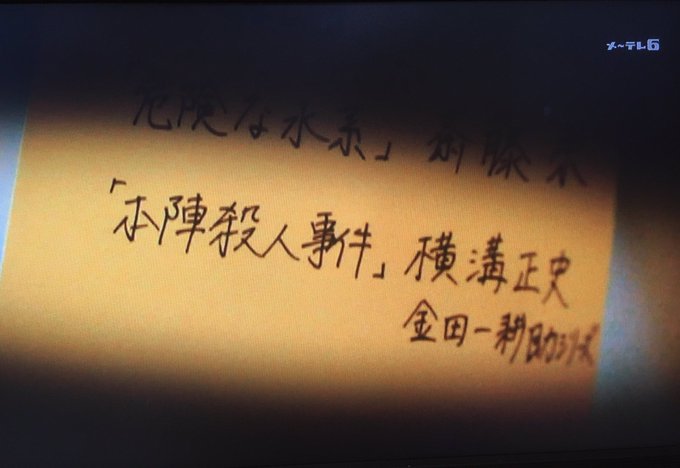 メ〜テレ6
危険な水系」斎藤栄
「本陣殺人事件」横溝正史
金田一耕助シリーズ